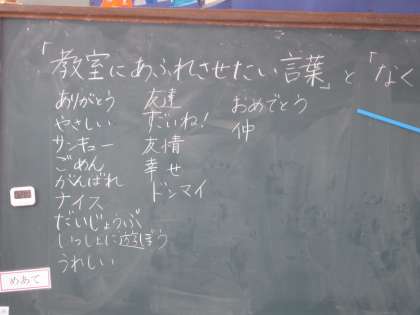 「教室にあふれさせたい言葉」と「なく
ありがとう
やさしい
サンキュー
ごめん
がんばれ
ナイス
だいじょうぶ
いっしょに遊ぼう
うれしい
友達
すごいね!
友情
幸せ
ドンマイ
おめでとう
仲
めあて